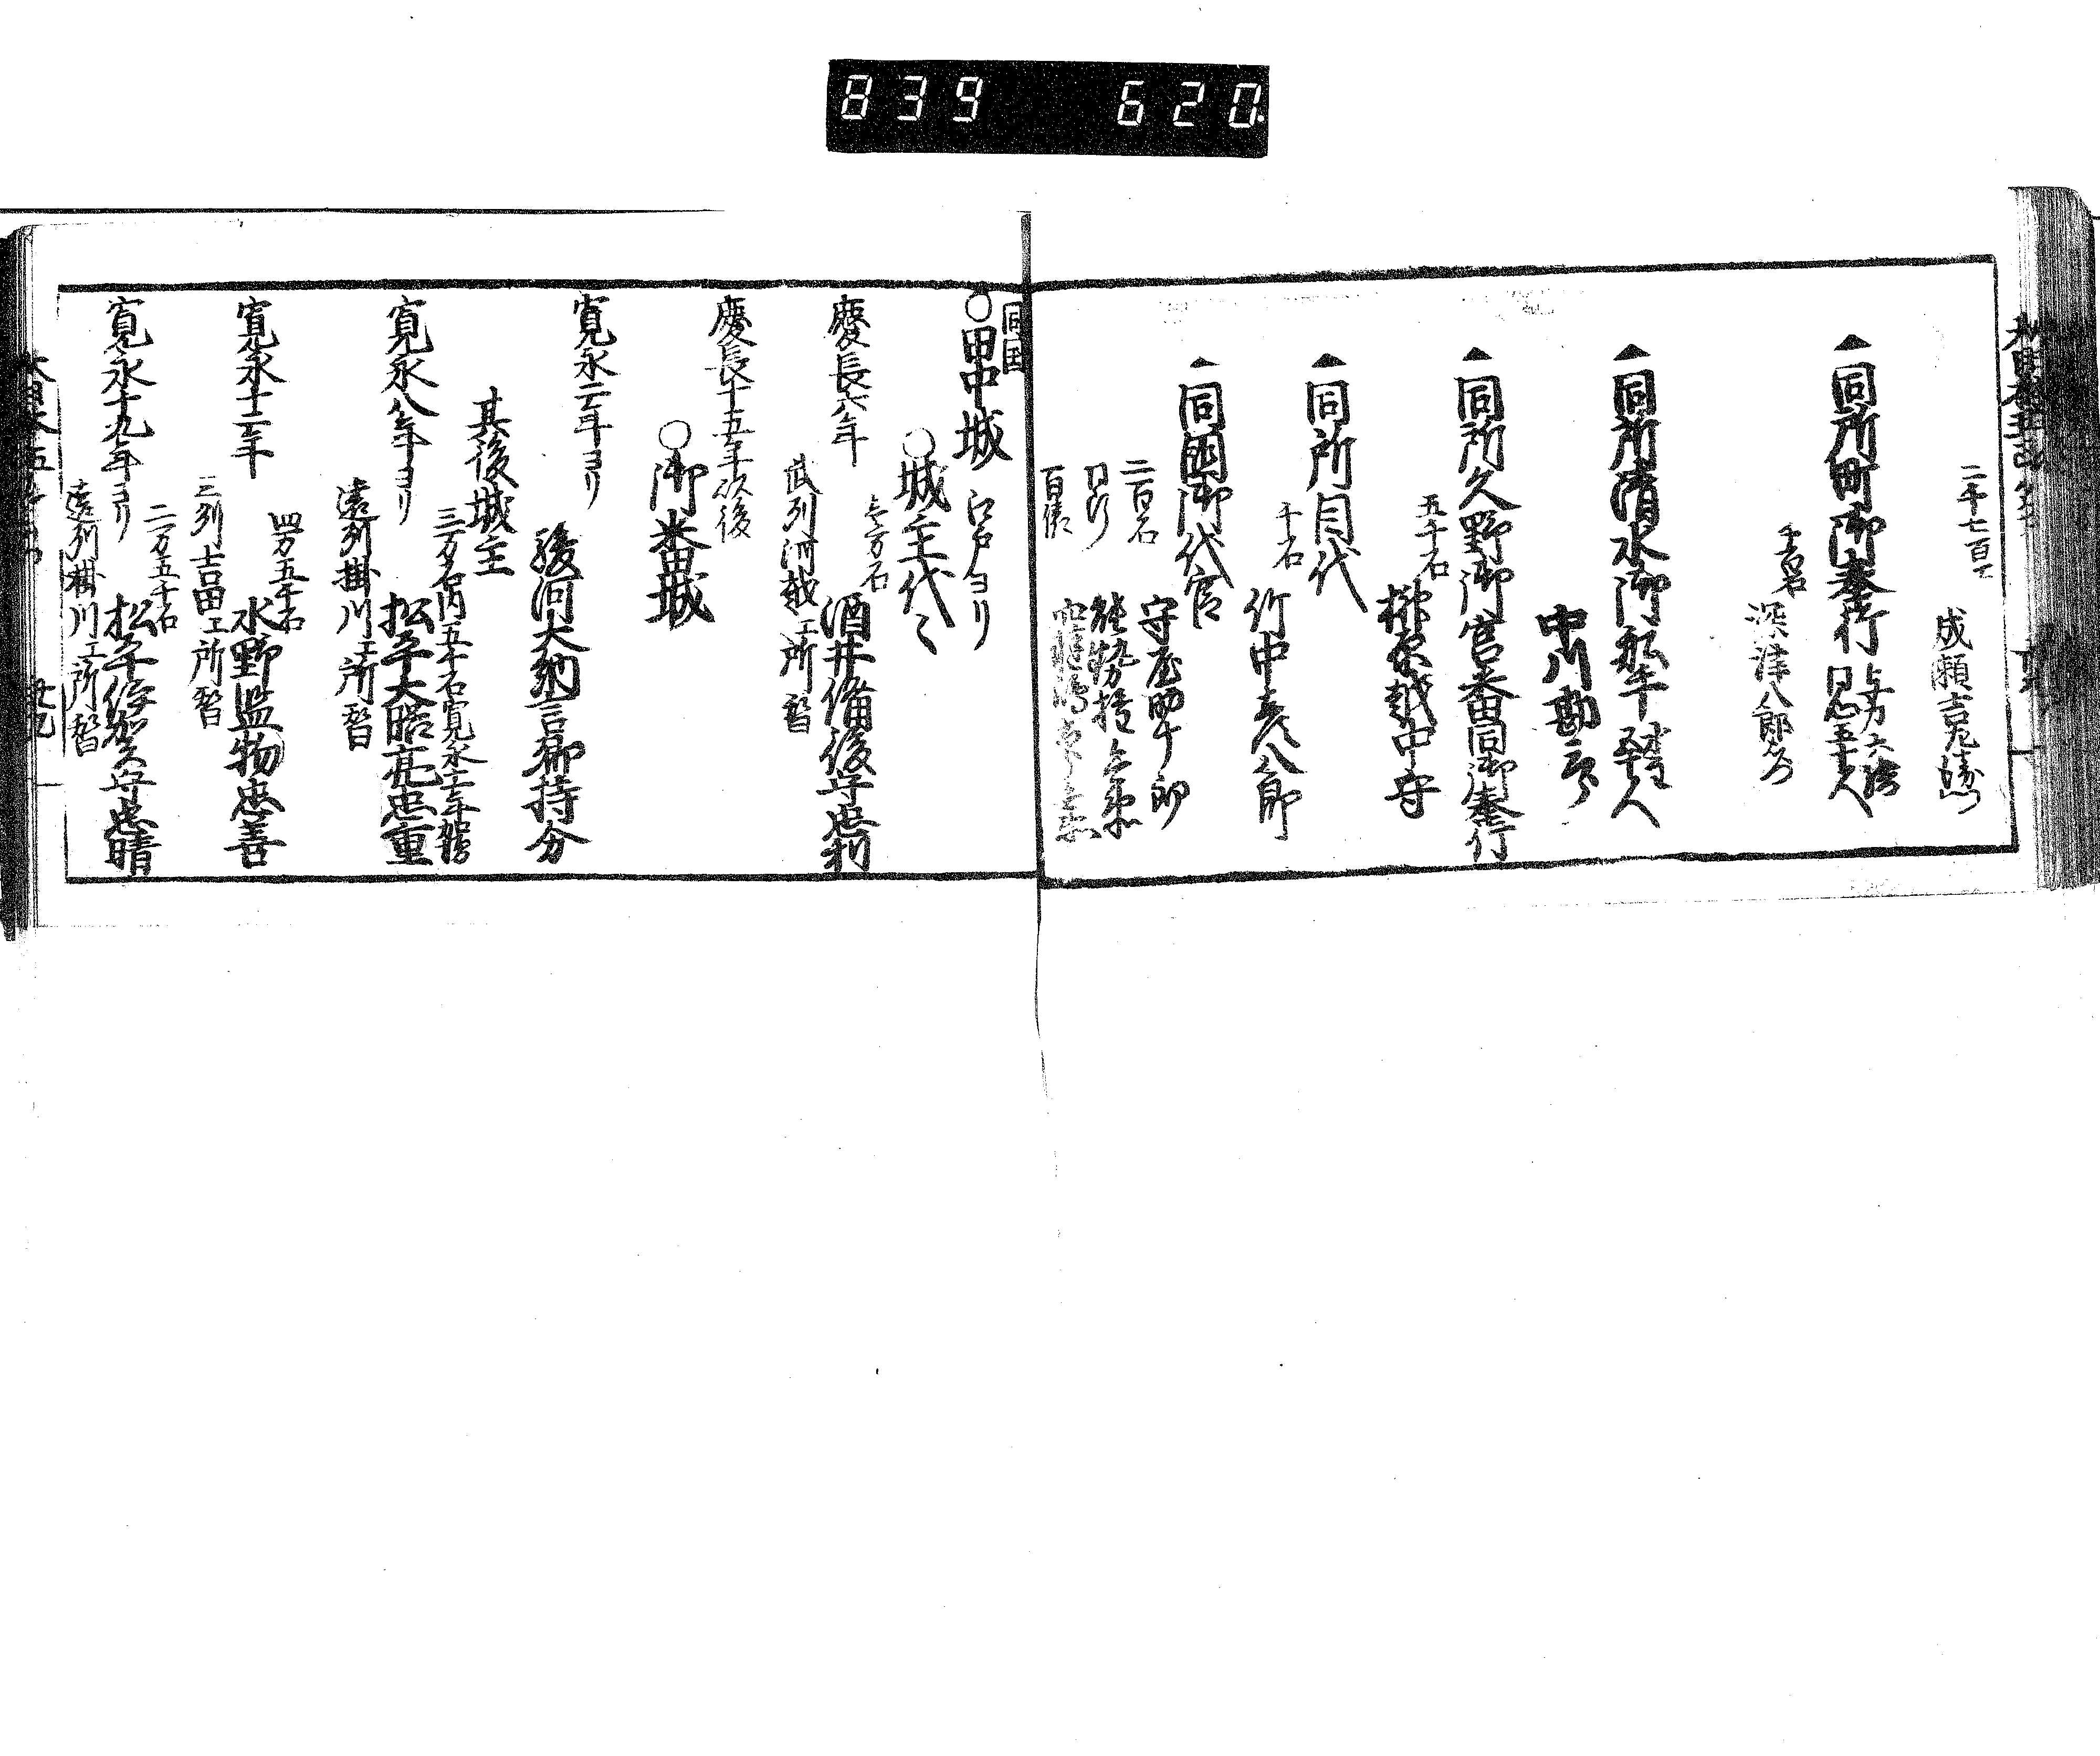 839 620
二千七百石
成瀬吉右衛門
▲同所町御奉行
与力六騎
同心五十人
千五百石
深津八郎右衛門
▲同所清水御船手
水主五十人
中川勘三郎
▲同所久野御宮番同御奉行
五千石
榊原越中守
▲同所目代
千石
竹中彦八郎
▲同国御代官
二百石
守屋助十郎
同断
能勢権兵衛
百俵
同国
○田中城
江戸ヨリ
○城主代々
慶長六年
壱万石
酒井備後守忠利
武列河越エ所替
慶長十五年以後
○御番城
寛永二年ヨリ
駿河大納言卿持分
其後城主
三万石内五千石寛永十年加増
寛永八年ヨリ
松平大膳亮忠重
遠列掛川エ所替
四万五千石
寛永十二年
水野監物忠善
三列吉田エ所替
二万五千石
寛永十九年ヨリ
松平伊賀守忠晴
遠列掛川エ所替